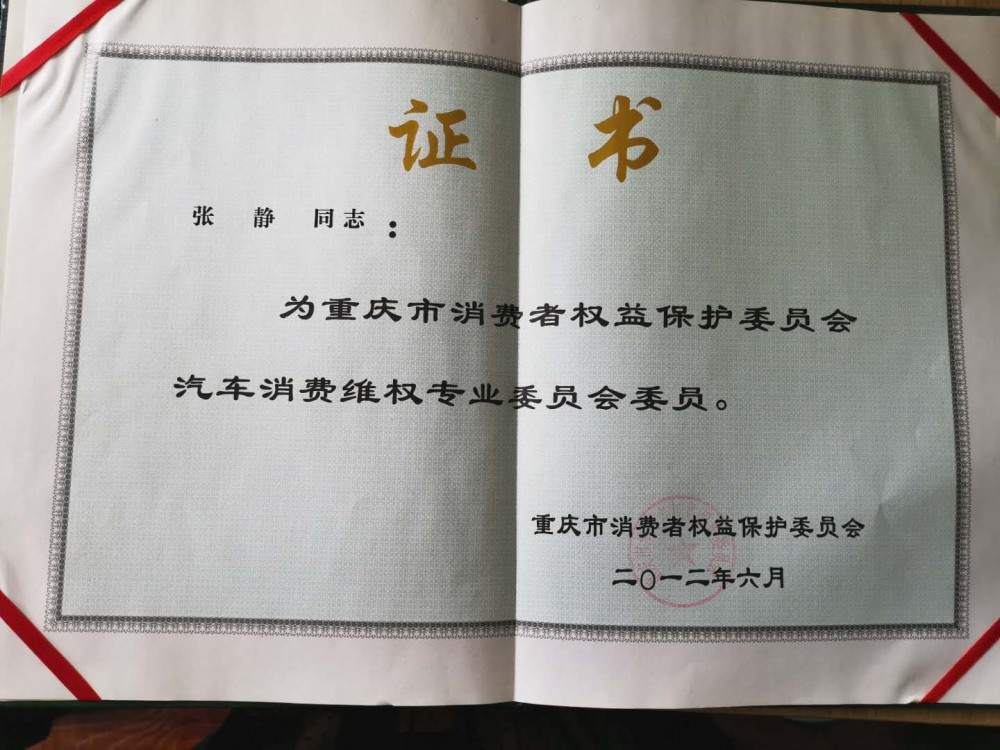 证书
张 静 同志：
为重庆市消费者权益保护委员会
汽车消费维权专业委员会委员。
重庆市消费者权益保护委员会
二〇一二年六月